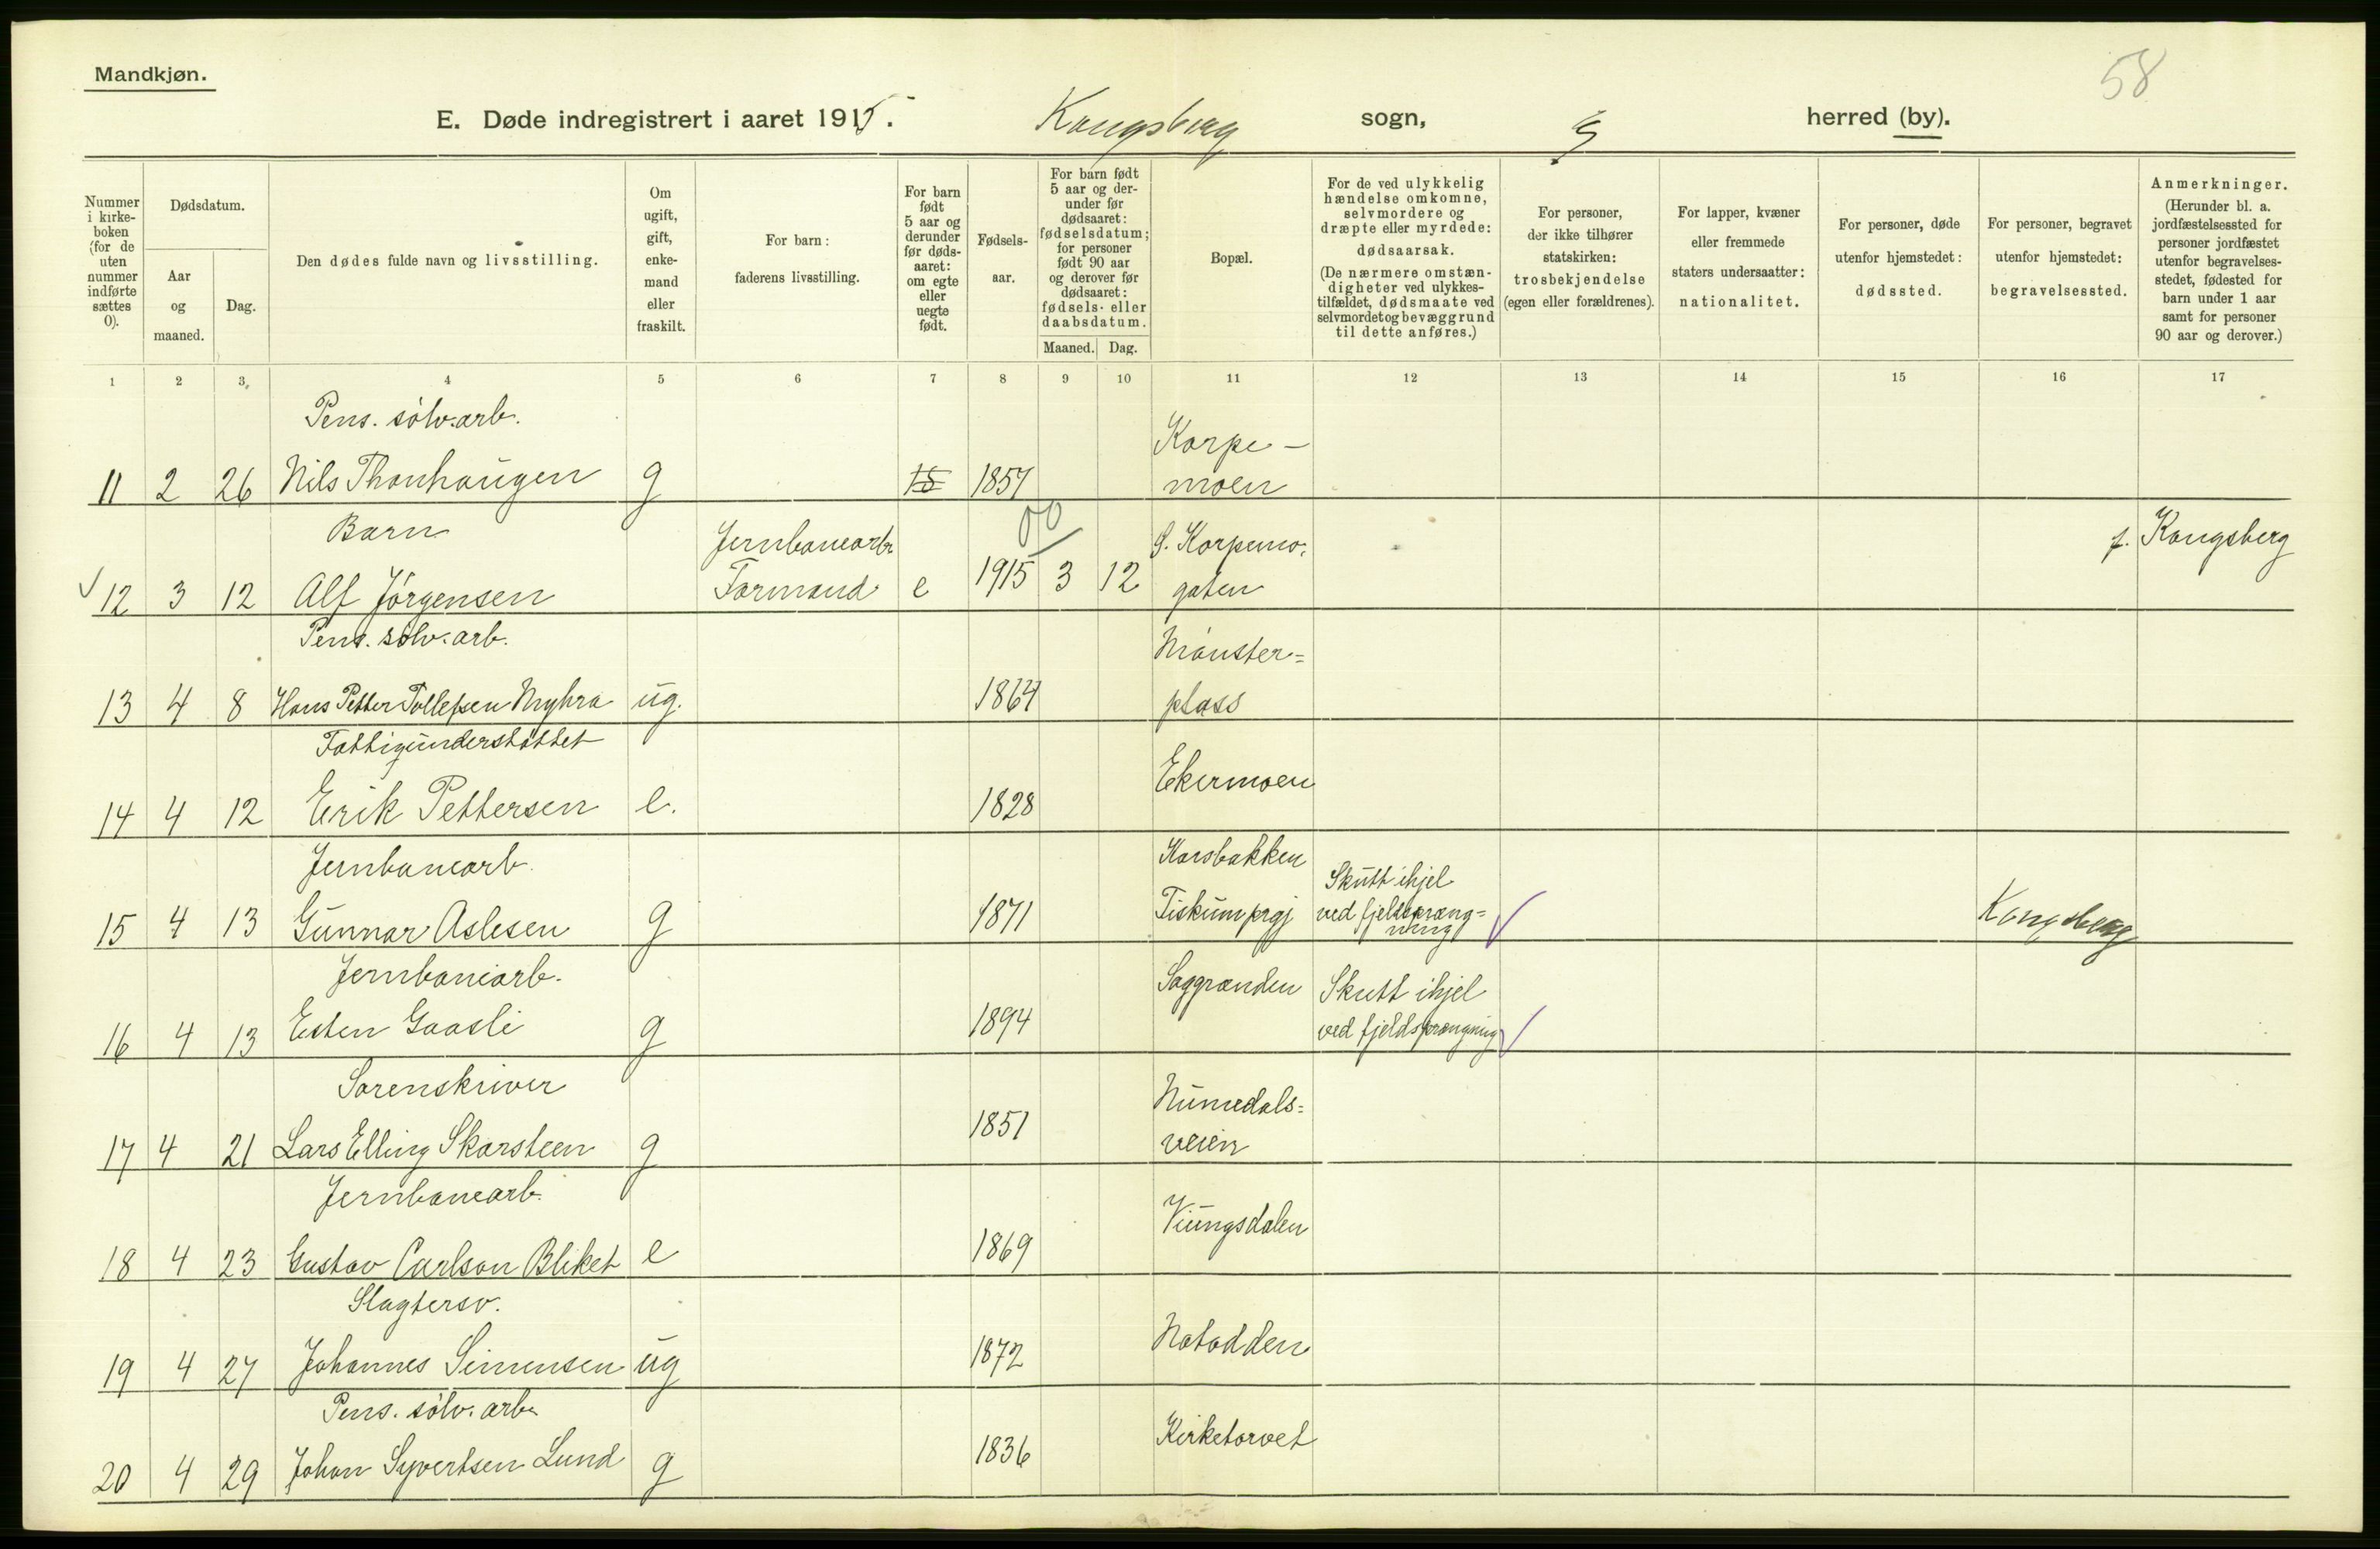 Mandkjøn.
58
E. Døde indregistrert i aaret 1915. Kongsberg sogn, herred (by).
Nummer i kirke-boken (for de uten nummer indførte sættes 0).
Dødsdatum.
Aar og maaned.
Dag.
Den dødes fulde navn og livsstilling.
Om ugift, gift, enke-mand eller fraskilt.
For barn: faderens livsstilling.
For barn født 5 aar og derunder før døds-aaret: om egte eller uegte født.
Fødsels-aar.
For barn født 5 aar og der-under før dødsaaret: fødselsdatum; for personer født 90 aar og derover før dødsaaret: fødsels- eller daabsdatum.
Maaned. Dag.
Bopæl.
For de ved ulykkelig hændelse omkomne, selvmordere og dræpte eller myrdede: dødsaarsak. (De nærmere omstæn-digheter ved ulykkes-tilfældet, dødsmaate ved selvmordet og bevæggrund til dette anføres.)
For personer, der ikke tilhører statskirken: trosbekjendelse (egen eller forældrenes).
For lapper, kvæner eller fremmede staters undersaatter: nationalitet.
For personer, døde utenfor hjemstedet: dødssted.
For personer, begravet utenfor hjemstedet: begravelsessted.
Anmerkninger. (Herunder bl. a. jordfæstelsessted for personer jordfæstet utenfor begravelses-stedet, fødested for barn under 1 aar samt for personer 90 aar og derover.)
1 2 3 4 5 6 7 8 9 10 11 12 13 14 15 16 17
Pens. sölv.arb. Korpe-
11 2 26 Nils Thonhaugen g 1857 moen
Barn Jernbanearb. 00 G. Korpemo. f. Kongsberg
12 3 12 Alf Jörgensen Formand e 1915 3 12 gaten
Pens. sölv.arb. Mönster=
13 4 8 Hans Petter Tollefsen Myhra ug. 1864 plass
Fattigunderstöttet Ekermoen
14 4 12 Erik Pettersen e. 1828
Jernbanearb. Korsbakken Skutt ihjel
15 4 13 Gunnar Aslesen g 1871 Fiskum prgj ved fjeldspræng=ning Kongsberg
Jernbanearb. Saggrenden Skutt ihjel
16 4 13 Esten Gaasli g 1894 ved fjeldsprængning
Sorenskriver Numedals=
17 4 21 Lars Elling Skarsteen g 1851 veien
Jernbanearb. Viungsdalen
18 4 23 Gustav Carlson Bliket e 1869
Slagtersv. Notodden
19 4 27 Johannes Simensen ug 1872
Pens. sölv. arb. Kirketorvet
20 4 29 Johan Syvertsen Lund g 1836